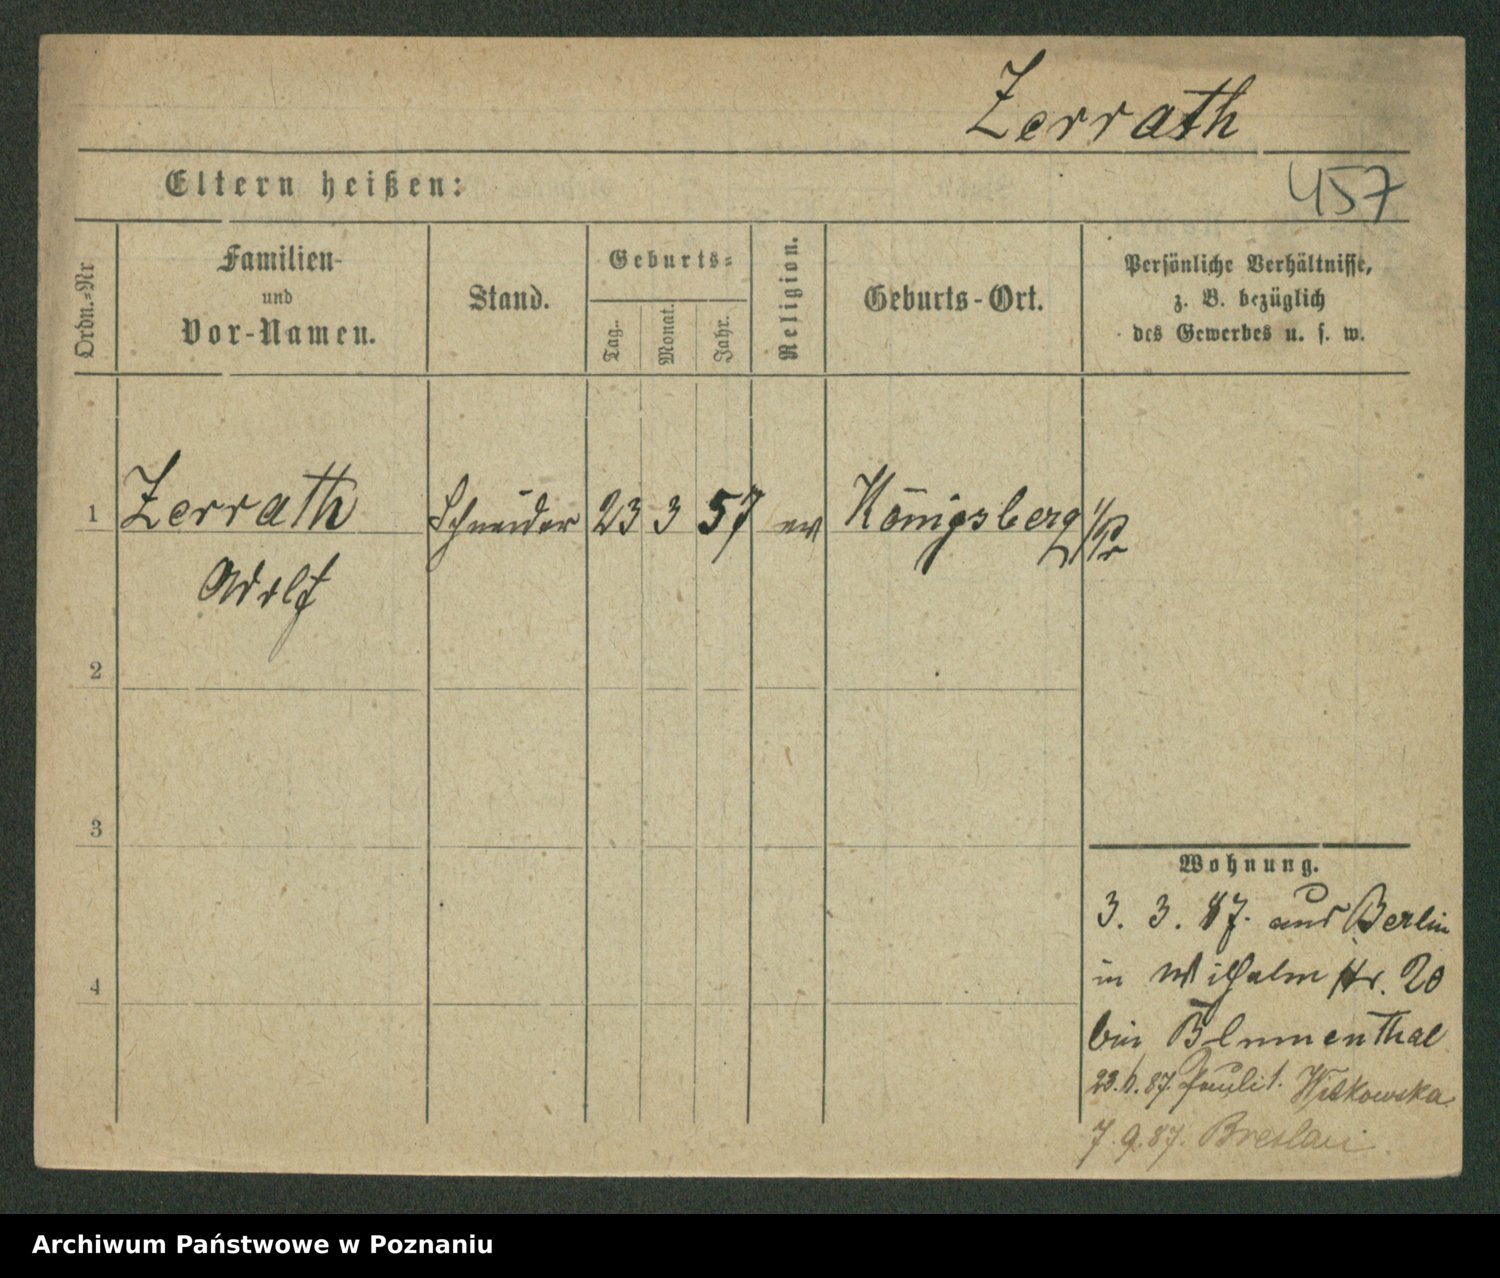 Zerrath
Eltern heißen:
457
Ordn.=Nr
Familien-
und
Vor-Namen.
Stand.
Geburts=
Tag.
Monat.
Jahr.
Religion.
Geburts-Ort.
Persönliche Verhältnisse,
z. B. bezüglich
des Gewerbes u. s. w.
1 Zerrath Schneider 23 3 57 ev Königsberg i/Pr
Adolf
2
3
4
Wohnung.
3. 3. 87. aus Berlin
in Wilhelmstr. 20
bei Blumenthal
23. 87. Pauli 1. Witkowska
7. 9. 87. Breslau